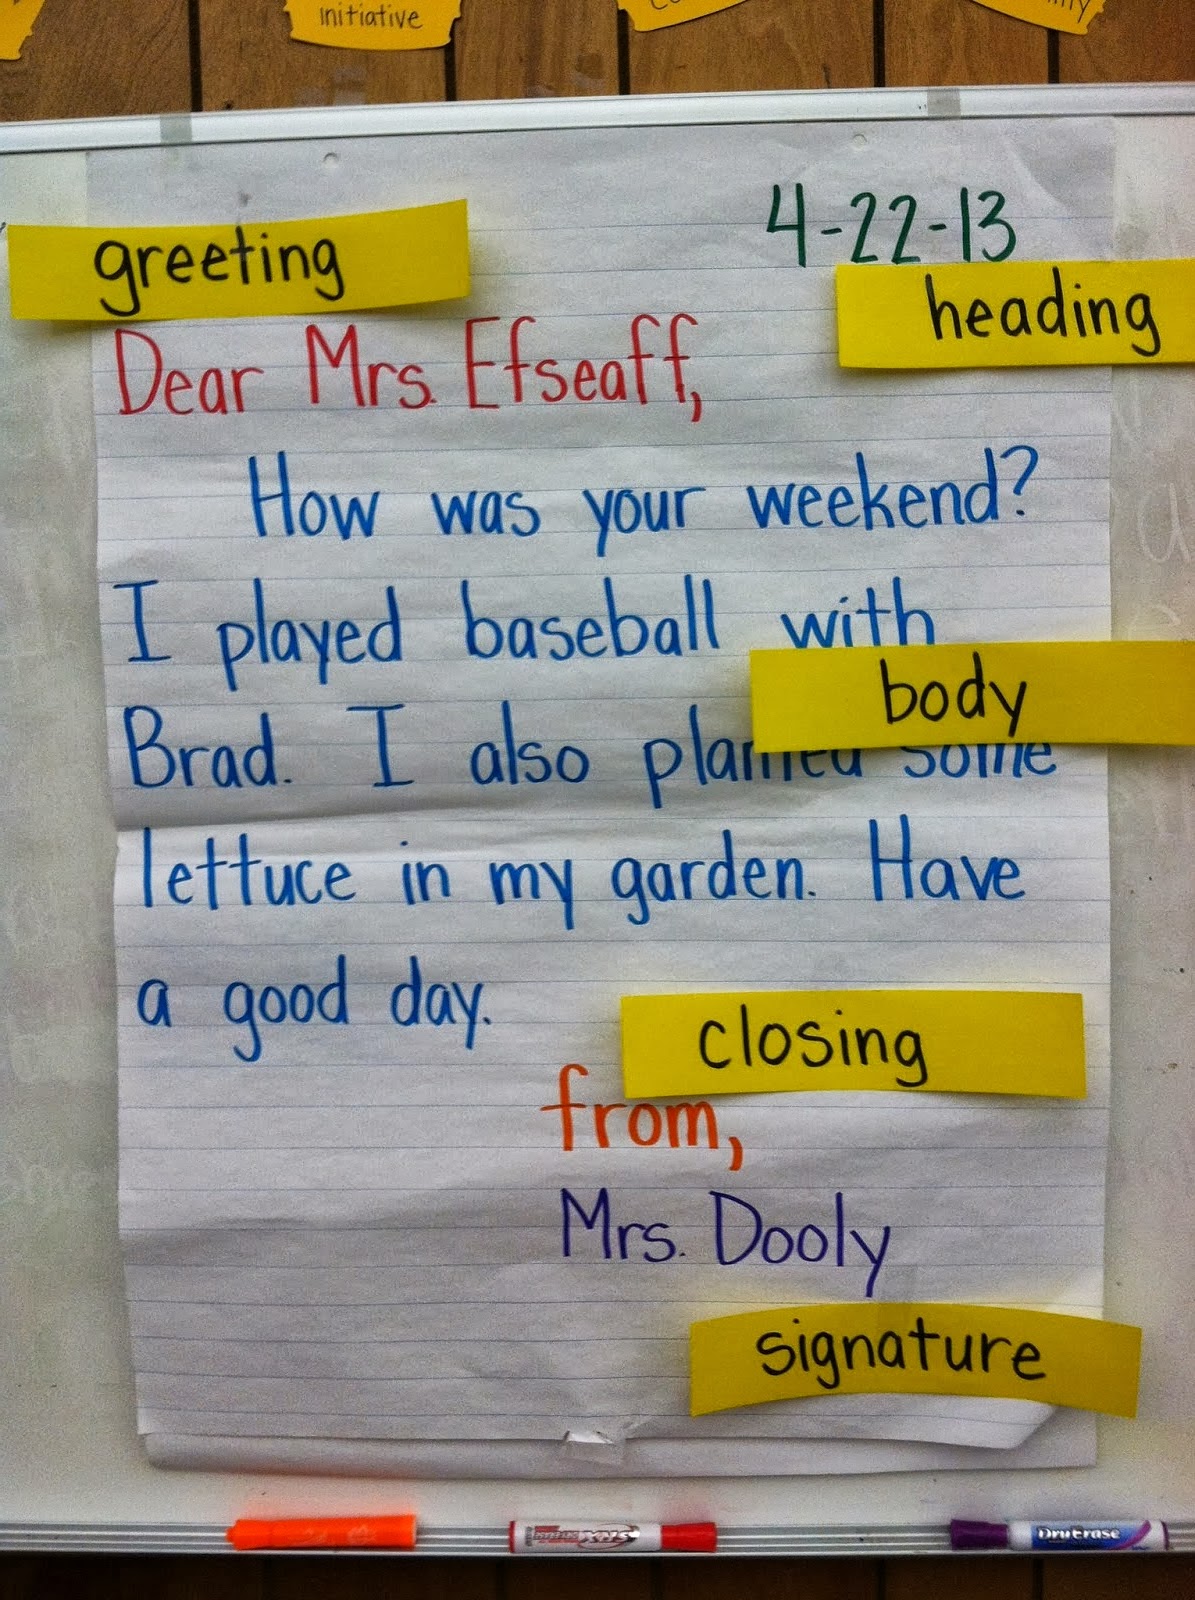 initiative
4-22-13
greeting
heading
Dear Mrs. Efseaff,
How was your weekend?
I played baseball with
body
Brad. I also planted some
lettuce in my garden. Have
a good day.
closing
from,
Mrs. Dooly
signature
Dry Erase